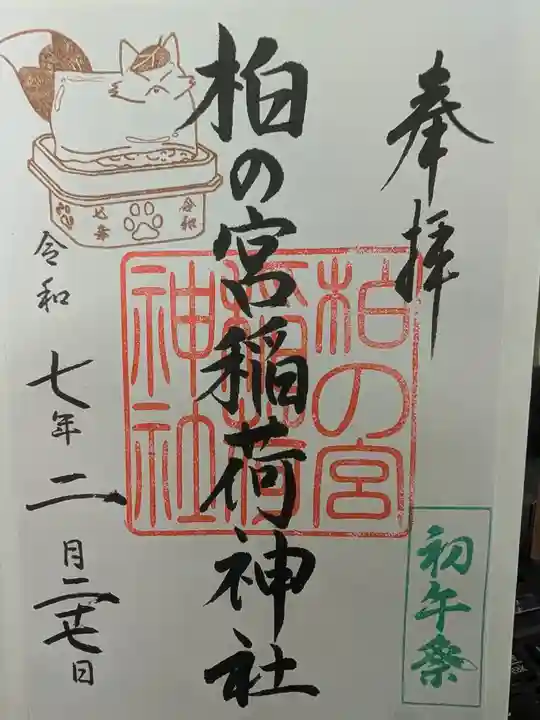 奉拝
初午祭
柏の宮稲荷神社
柏の宮
稲荷
神社
令和
七年
令和七年二月二十七日